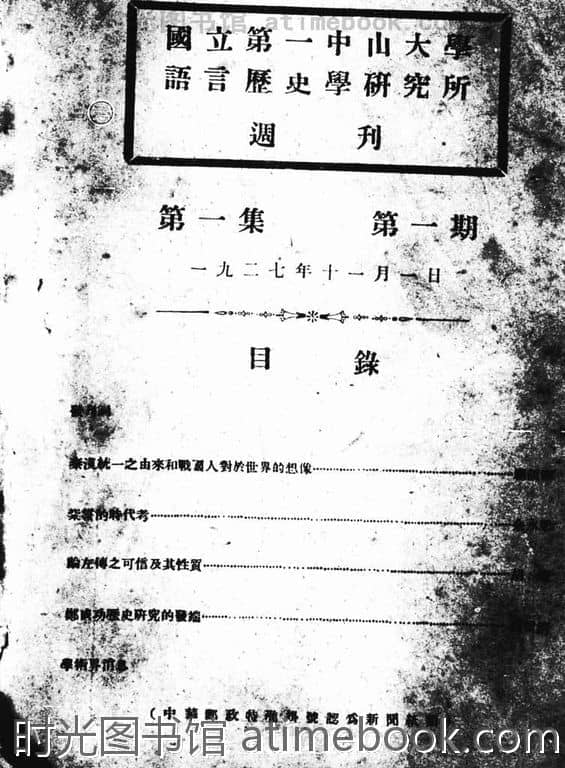 时光图书馆 atimebook.com
國立第一中山大學
語言歷史學研究所
週刊
第一集 第一期
一九二七年十一月一日
目錄
秦漢統一之由來和戰國人對於世界的想像
的時代考
論左傳之可信及其性質
鄭成功歷史研究的發端
學術界消息
(中華郵政特 號認為新聞紙
时光图书馆 atimebook.com